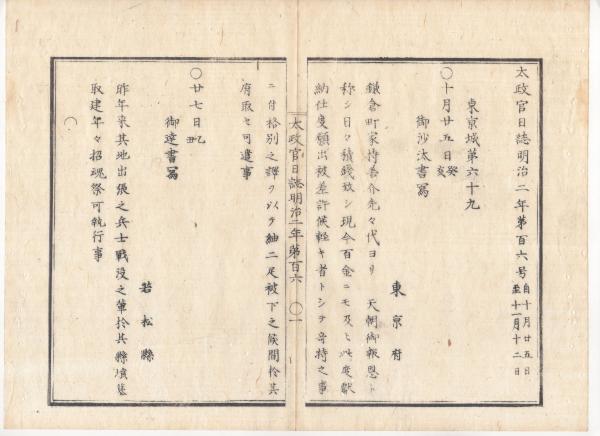 太政官日誌明治二年第百六号 自十月廿五日 至十一月十二日
東京城第六十九
○十月廿五日 癸亥
御沙汰書写
東京府
鎌倉町家持善介先々代ヨリ 天朝御報恩ト
称シ日々積銭致シ現今百金ニモ及ヒ此度献
納仕度願出被差許候軽キ者トシテ奇特之事
太政官日誌明治二年第百六 ○一
ニ付格別之譯ヲ以テ紬二疋被下之候間於其
府取セ可遣事
○廿七日 乙丑
御達書写
若松縣
昨年来其地出張之兵士戦没之輩於其縣墳墓
取建年々招魂祭可執行事
○